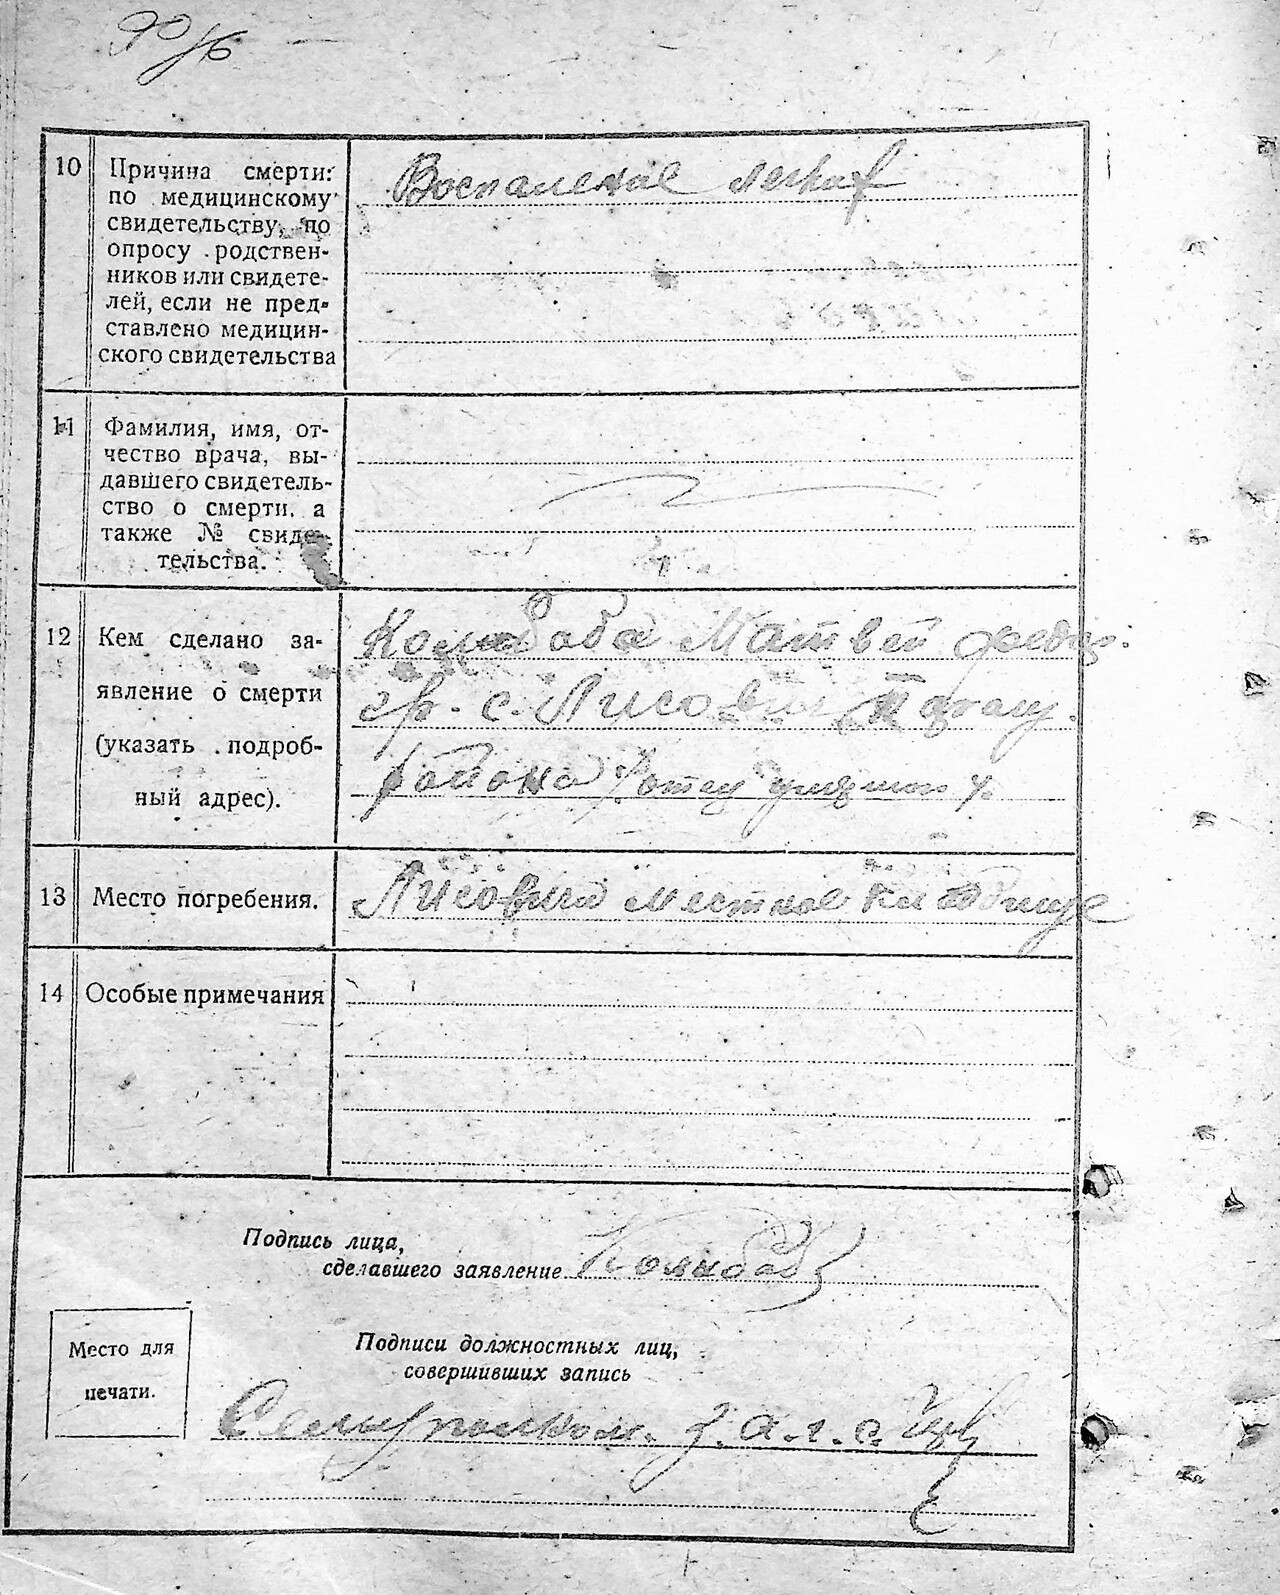 10 Причина смерти:
по медицинскому
свидетельству, по
опросу родствен-
ников или свидете-
лей, если не пред-
ставлено медицин-
ского свидетельства
Воспаление легких
11 Фамилия, имя, от-
чество врача, вы-
давшего свидетель-
ство о смерти, а
также № свиде-
тельства.
12 Кем сделано за-
явление о смерти
(указать подроб-
ный адрес).
Колибаба Матвей Федор.
гр. с. Лисовичи
района
13 Место погребения.
Лисовичи местное кладбище
14 Особые примечания
Подпись лица,
сделавшего заявление Колибаба
Подписи должностных лиц,
совершивших запись
Место для
печати.
З.А.Г.С.